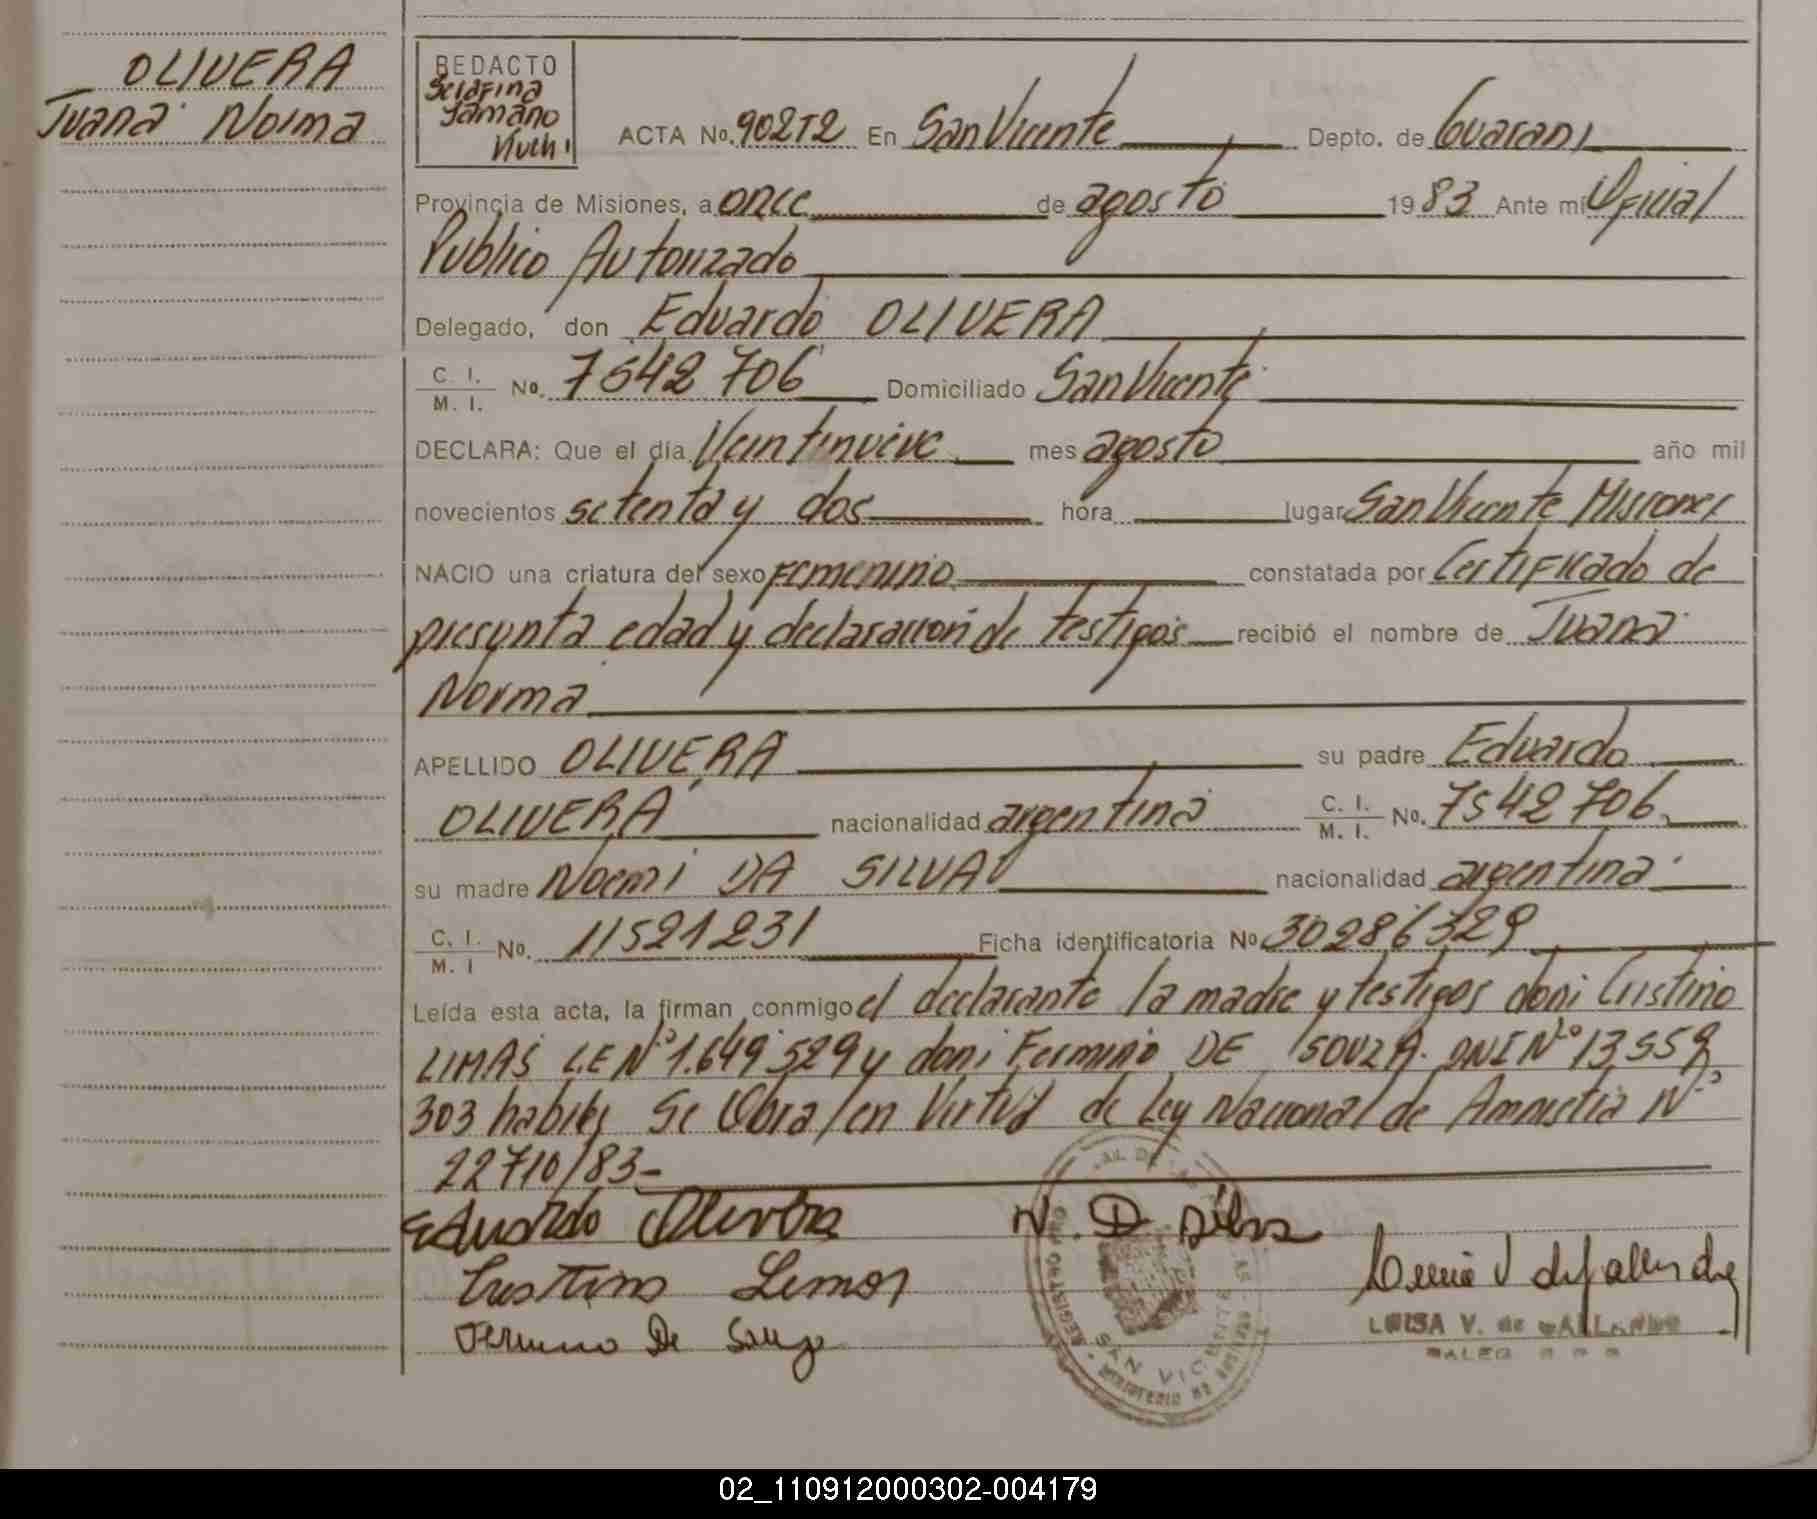 OLIVERA
Juana Norma
REDACTO
Serafina
Tamaño
ACTA No. 902T2 En San Vicente Depto. de Guarani
Provincia de Misiones, a once de agosto 1983 Ante mi Oficial
Publico Autorizado
Delegado, don Eduardo OLIVERA
C. I. / M. I. No. 7542706 Domiciliado San Vicente
DECLARA: Que el día Veintinueve mes agosto año mil
novecientos setenta y dos hora lugar San Vicente Misiones
NACIO una criatura del sexo Femenino constatada por Certificado de
presunta edad y declaracion de testigos recibió el nombre de Juana
Norma
APELLIDO OLIVERA su padre Eduardo
OLIVERA nacionalidad argentina C. I. / M. I. No. 7542706
su madre Noemi DA SILVA nacionalidad argentina
C. I. / M. I No. 11521231 Ficha identificatoria No 30286329
Leída esta acta, la firman conmigo el declarante la madre y testigos don: Cristino
LIMAS L.E Nº 1.649529 y don: Fermino DE SOUZA. DNI Nº 13559
303 habiles Se Obra en Virtud de Ley Nacional de Amnistia Nº
22710/83-
Eduardo Olivera N. D Silva
Cristino Limas
Fermino De Souza
LUISA V. de GALLARDO
REGISTRO PRO
SAN VICENTE
02_110912000302-004179